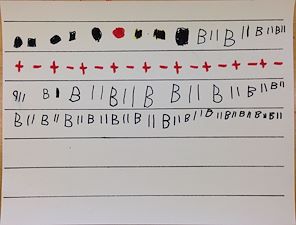 B || B || B || B ||
+ - + - + - + - + - + - + - + - + -
B || B | B || B || B B || B || B || B ||
B || B || B || B || B || B || B || B || B || B || B || B || B ||